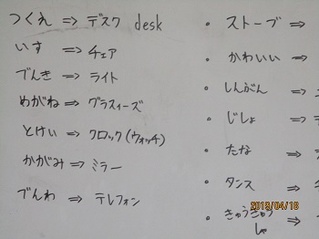 つくえ ⇒ デスク desk
いす ⇒ チェア
でんき ⇒ ライト
めがね ⇒ グラスィーズ
とけい ⇒ クロック(ウォッチ)
かがみ ⇒ ミラー
でんわ ⇒ テレフォン
・ ストーブ ⇒
・ かわいい ⇒
・ しんぶん ⇒
・ じしょ ⇒
・ たな ⇒
・ タンス ⇒
・ きゅうきゅう ⇒
しゅ
2018/04/18